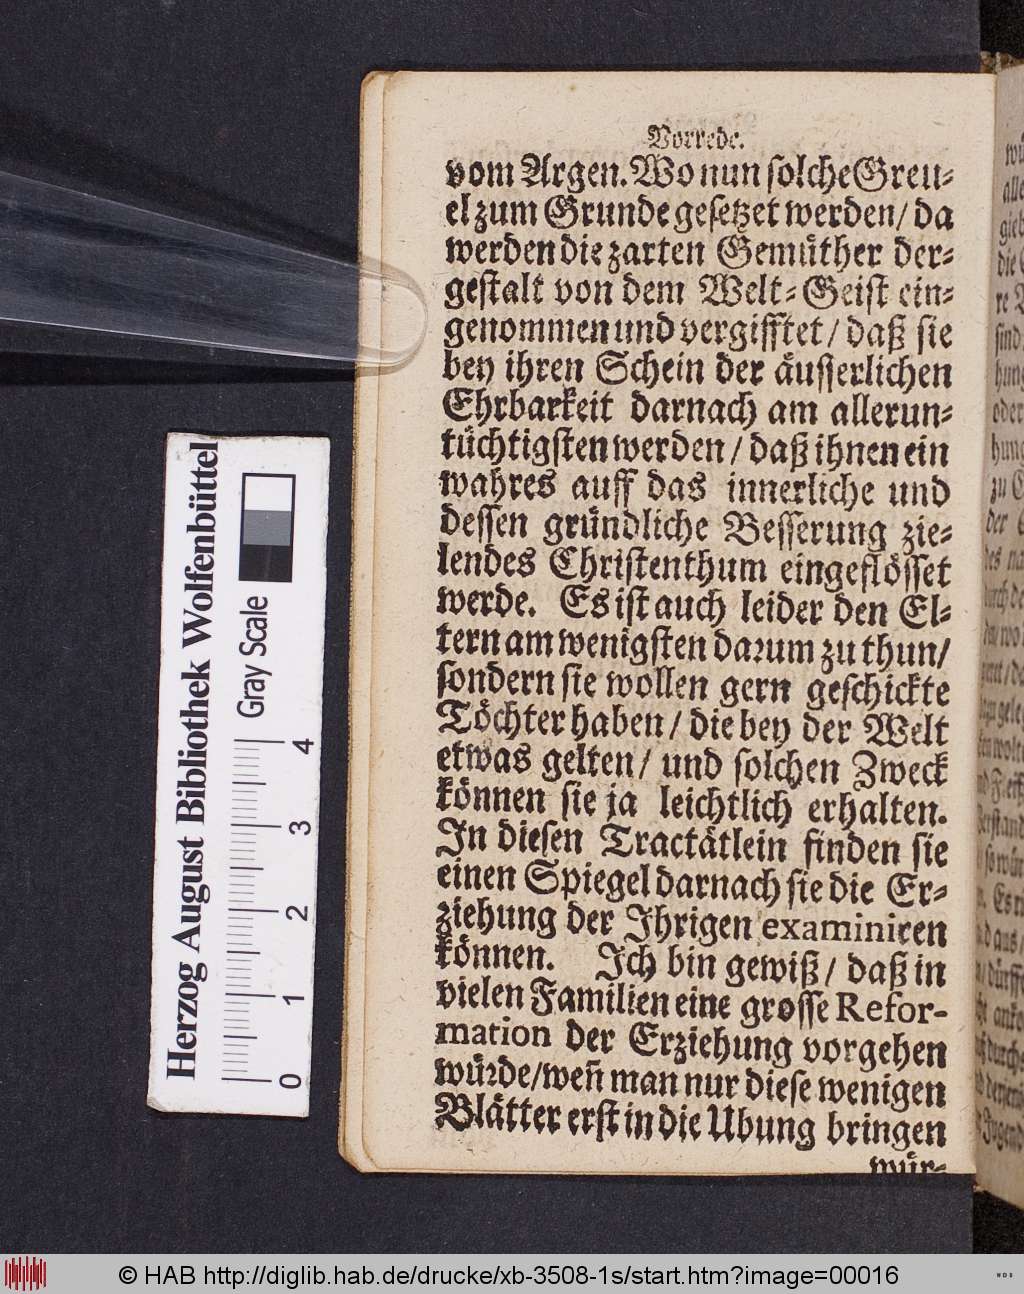 Vorrede.
vom Argen. Wo nun solche Greu-
el zum Grunde gesetzet werden/ da
werden die zarten Gemüther der-
gestalt von dem Welt-Geist ein-
genommen und vergifftet/ daß sie
bey ihren Schein der äusserlichen
Ehrbarkeit darnach am allerun-
tüchtigsten werden/ daß ihnen ein
wahres auff das innerliche und
dessen gründliche Besserung zie-
lendes Christenthum eingeflösset
werde. Es ist auch leider den El-
tern am wenigsten darum zu thun/
sondern sie wollen gern geschickte
Töchter haben/ die bey der Welt
etwas gelten/ und solchen Zweck
können sie ja leichtlich erhalten.
In diesen Tractätlein finden sie
einen Spiegel darnach sie die Er-
ziehung der Ihrigen examiniren
können. Ich bin gewiß/ daß in
vielen Familien eine grosse Refor-
mation der Erziehung vorgehen
würde/ weñ man nur diese wenigen
Blätter erst in die Ubung bringen
wür-
Herzog August Bibliothek Wolfenbüttel
Gray Scale
0 1 2 3 4
© HAB http://diglib.hab.de/drucke/xb-3508-1s/start.htm?image=00016